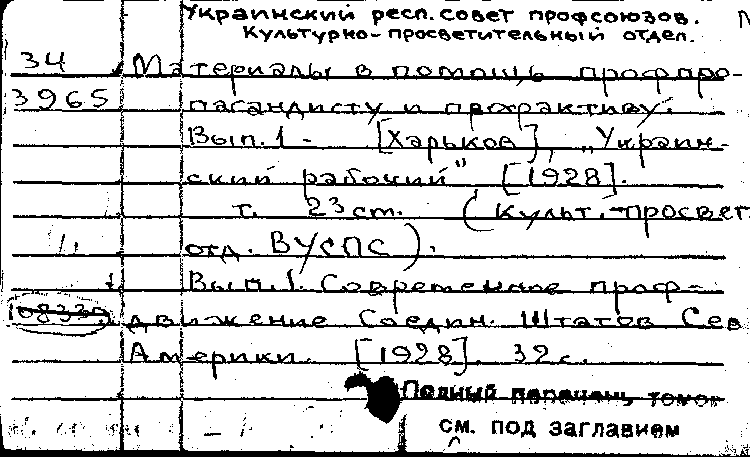 Украинский респ. совет профсоюзов.
Культурно-просветительный отдел.
34 Материалы в помощь профпро-
3965 пагандисту и профактиву.
Вып. 1 - [Харьков], „Украин-
ский рабочий", [1928].
т. 23 ст. (Культ.-просвет
отд. ВУСПС).
Вып. 1. Современное проф-
движение Соедин. Штатов Сев
Америки. [1928]. 32 с.
Полный перечень томов
см. под заглавием